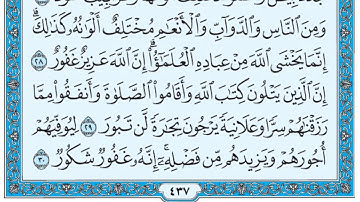 وَمِنَ ٱلنَّاسِ وَٱلدَّوَآبِّ وَٱلْأَنْعَٰمِ مُخْتَلِفٌ أَلْوَٰنُهُۥ كَذَٰلِكَۗ
إِنَّمَا يَخْشَى ٱللَّهَ مِنْ عِبَادِهِ ٱلْعُلَمَٰٓؤُا۟ۗ إِنَّ ٱللَّهَ عَزِيزٌ غَفُورٌ ٢٨
إِنَّ ٱلَّذِينَ يَتْلُونَ كِتَٰبَ ٱللَّهِ وَأَقَامُوا۟ ٱلصَّلَوٰةَ وَأَنفَقُوا۟ مِمَّا
رَزَقْنَٰهُمْ سِرًّا وَعَلَانِيَةً يَرْجُونَ تِجَٰرَةً لَّن تَبُورَ ٢٩ لِيُوَفِّيَهُمْ
أُجُورَهُمْ وَيَزِيدَهُم مِّن فَضْلِهِۦٓۚ إِنَّهُۥ غَفُورٌ شَكُورٌ ٣٠
٤٣٧